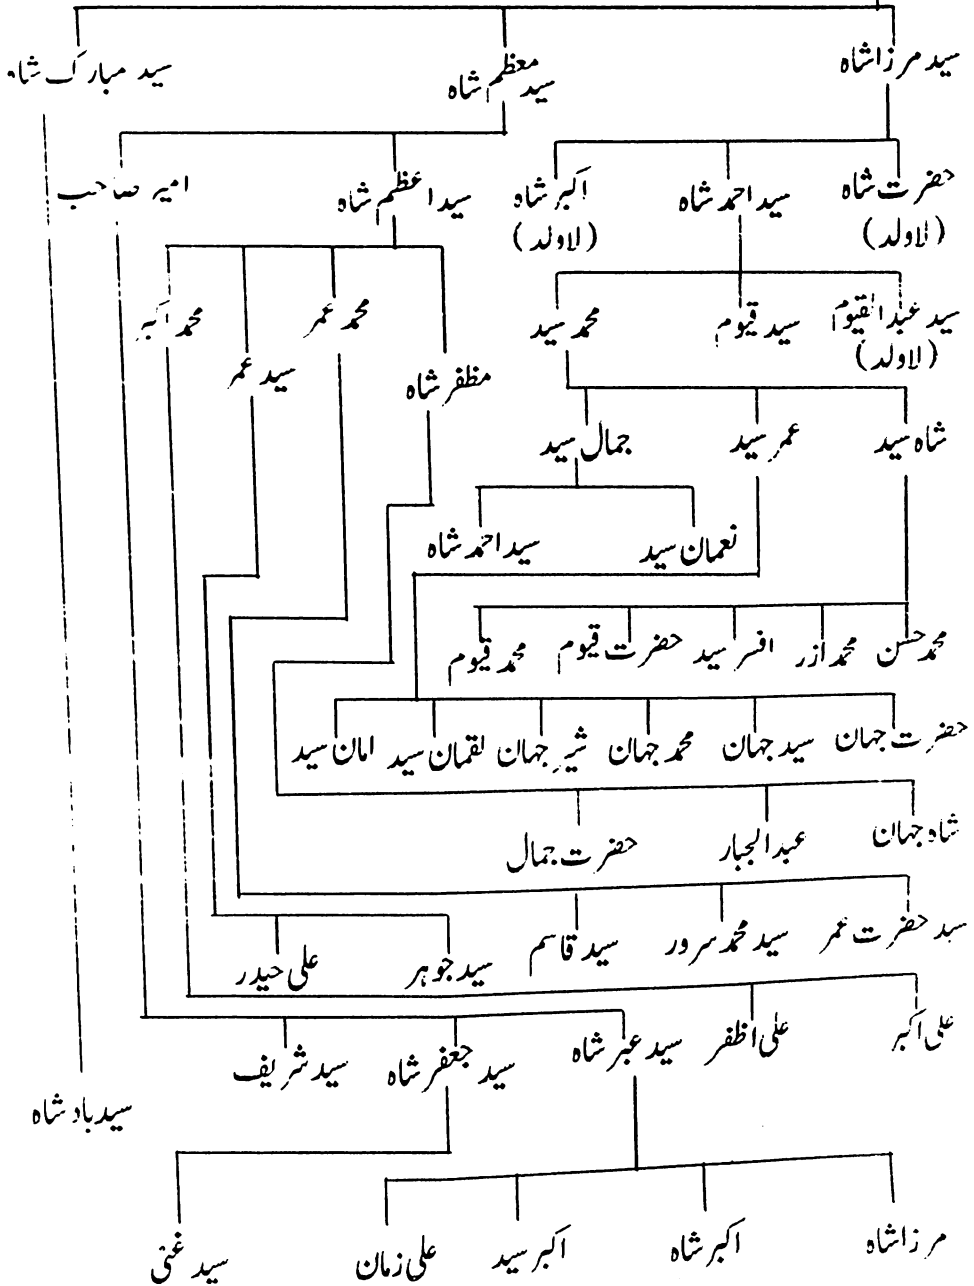 سید مرزا شاہ سید معظم شاہ سید مبارک شاہ
حضرت شاہ سید احمد شاہ اکبر شاہ سید اعظم شاہ امیر صاحب
(لاولد) (لاولد)
سید عبدالقیوم سید قیوم محمد سید محمد عمر محمد اکبر
(لاولد)
مظفر شاہ سید عمر
شاہ سید عمر سید جمال سید
نعمان سید سید احمد شاہ
محمد حسن محمد ازر افسر سید حضرت قیوم محمد قیوم
حضرت جہان سید جہان محمد جہان شیر جہان لقمان سید امان سید
شاہ جہان عبدالجبار حضرت جمال
سید حضرت عمر سید محمد سرور سید قاسم سید جوہر علی حیدر
علی اکبر علی اظفر سید عبر شاہ سید جعفر شاہ سید شریف
سید بادشاہ
مرزا شاہ اکبر شاہ اکبر سید علی زمان سید غنی